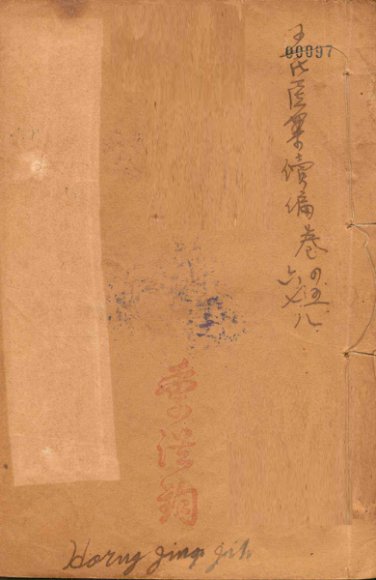 00097
王氏医案續編 卷四五
六七八
Horng Jing Jih